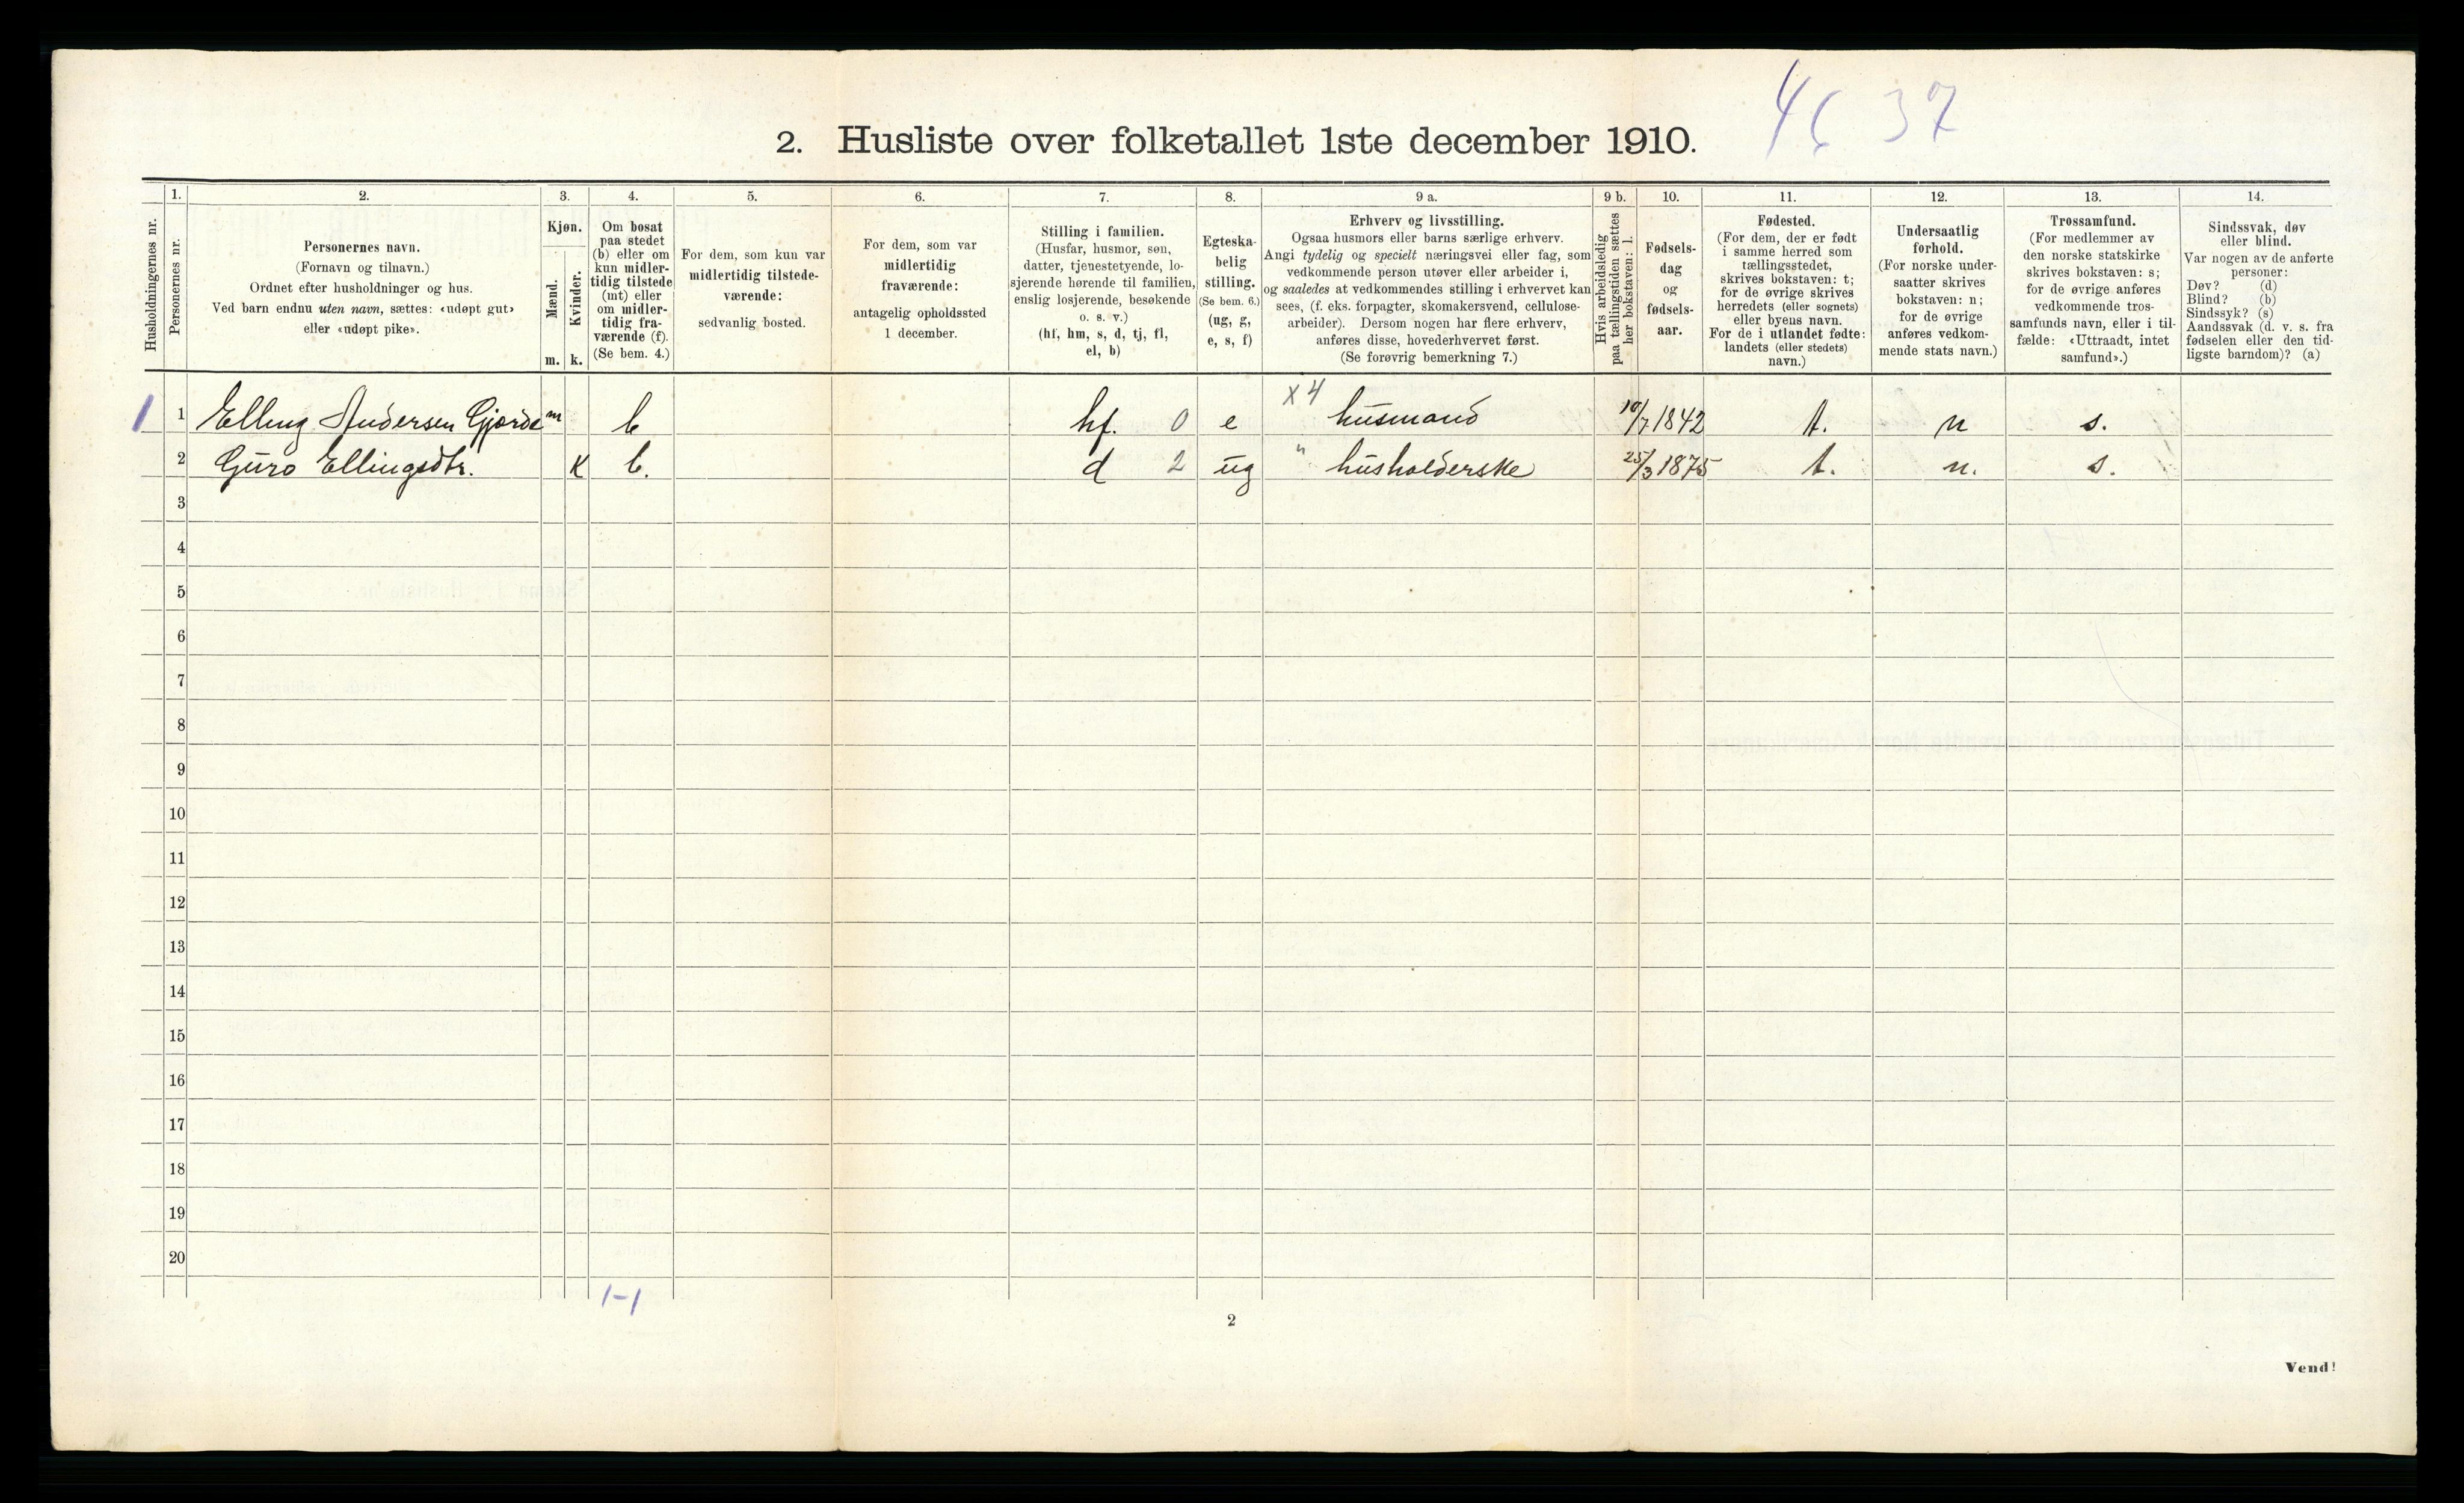 46 37
2. Husliste over folketallet 1ste december 1910.
Husholdningernes nr.
1.
Personernes nr.
2.
Personernes navn.
(Fornavn og tilnavn.)
Ordnet efter husholdninger og hus.
Ved barn endnu uten navn, sættes: «udøpt gut»
eller «udøpt pike».
3.
Kjøn.
Mænd.
Kvinder.
m. k.
4.
Om bosat
paa stedet
(b) eller om
kun midler-
tidig tilstede
(mt) eller
om midler-
tidig fra-
værende (f).
(Se bem. 4.)
5.
For dem, som kun var
midlertidig tilstede-
værende:
sedvanlig bosted.
6.
For dem, som var
midlertidig
fraværende:
antagelig opholdssted
1 december.
7.
Stilling i familien.
(Husfar, husmor, søn,
datter, tjenestetyende, lo-
sjerende hørende til familien,
enslig losjerende, besøkende
o. s. v.)
(hf, hm, s, d, tj, fl,
el, b)
8.
Egteska-
belig
stilling.
(Se bem. 6.)
(ug, g,
e, s, f)
9 a.
Erhverv og livsstilling.
Ogsaa husmors eller barns særlige erhverv.
Angi tydelig og specielt næringsvei eller fag, som
vedkommende person utøver eller arbeider i,
og saaledes at vedkommendes stilling i erhvervet kan
sees, (f. eks. forpagter, skomakersvend, cellulose-
arbeider). Dersom nogen har flere erhverv,
anføres disse, hovederhvervet først.
(Se forøvrig bemerkning 7.)
9 b.
Hvis arbeidsledig
paa tællingstiden sættes
her bokstaven: l.
10.
Fødsels-
dag
og
fødsels-
aar.
11.
Fødested.
(For dem, der er født
i samme herred som
tællingsstedet,
skrives bokstaven: t;
for de øvrige skrives
herredets (eller sognets)
eller byens navn.
For de i utlandet fødte:
landets (eller stedets)
navn.)
12.
Undersaatlig
forhold.
(For norske under-
saatter skrives
bokstaven: n;
for de øvrige
anføres vedkom-
mende stats navn.)
13.
Trossamfund.
(For medlemmer av
den norske statskirke
skrives bokstaven: s;
for de øvrige anføres
vedkommende tros-
samfunds navn, eller i til-
fælde: «Uttraadt, intet
samfund».)
14.
Sindssvak, døv
eller blind.
Var nogen av de anførte
personer:
Døv? (d)
Blind? (b)
Sindssyk? (s)
Aandssvak (d. v. s. fra
fødselen eller den tid-
ligste barndom)? (a)
1 1 Elling Andersen Gjerde m b hf. 0 e x4 husmand 10/7 1842 t. n s.
2 Guro Ellingsdtr. k b. d 2 ug " husholderske 25/3 1875 t. n. s.
3
4
5
6
7
8
9
10
11
12
13
14
15
16
17
18
19
20
1-1
2
Vend!